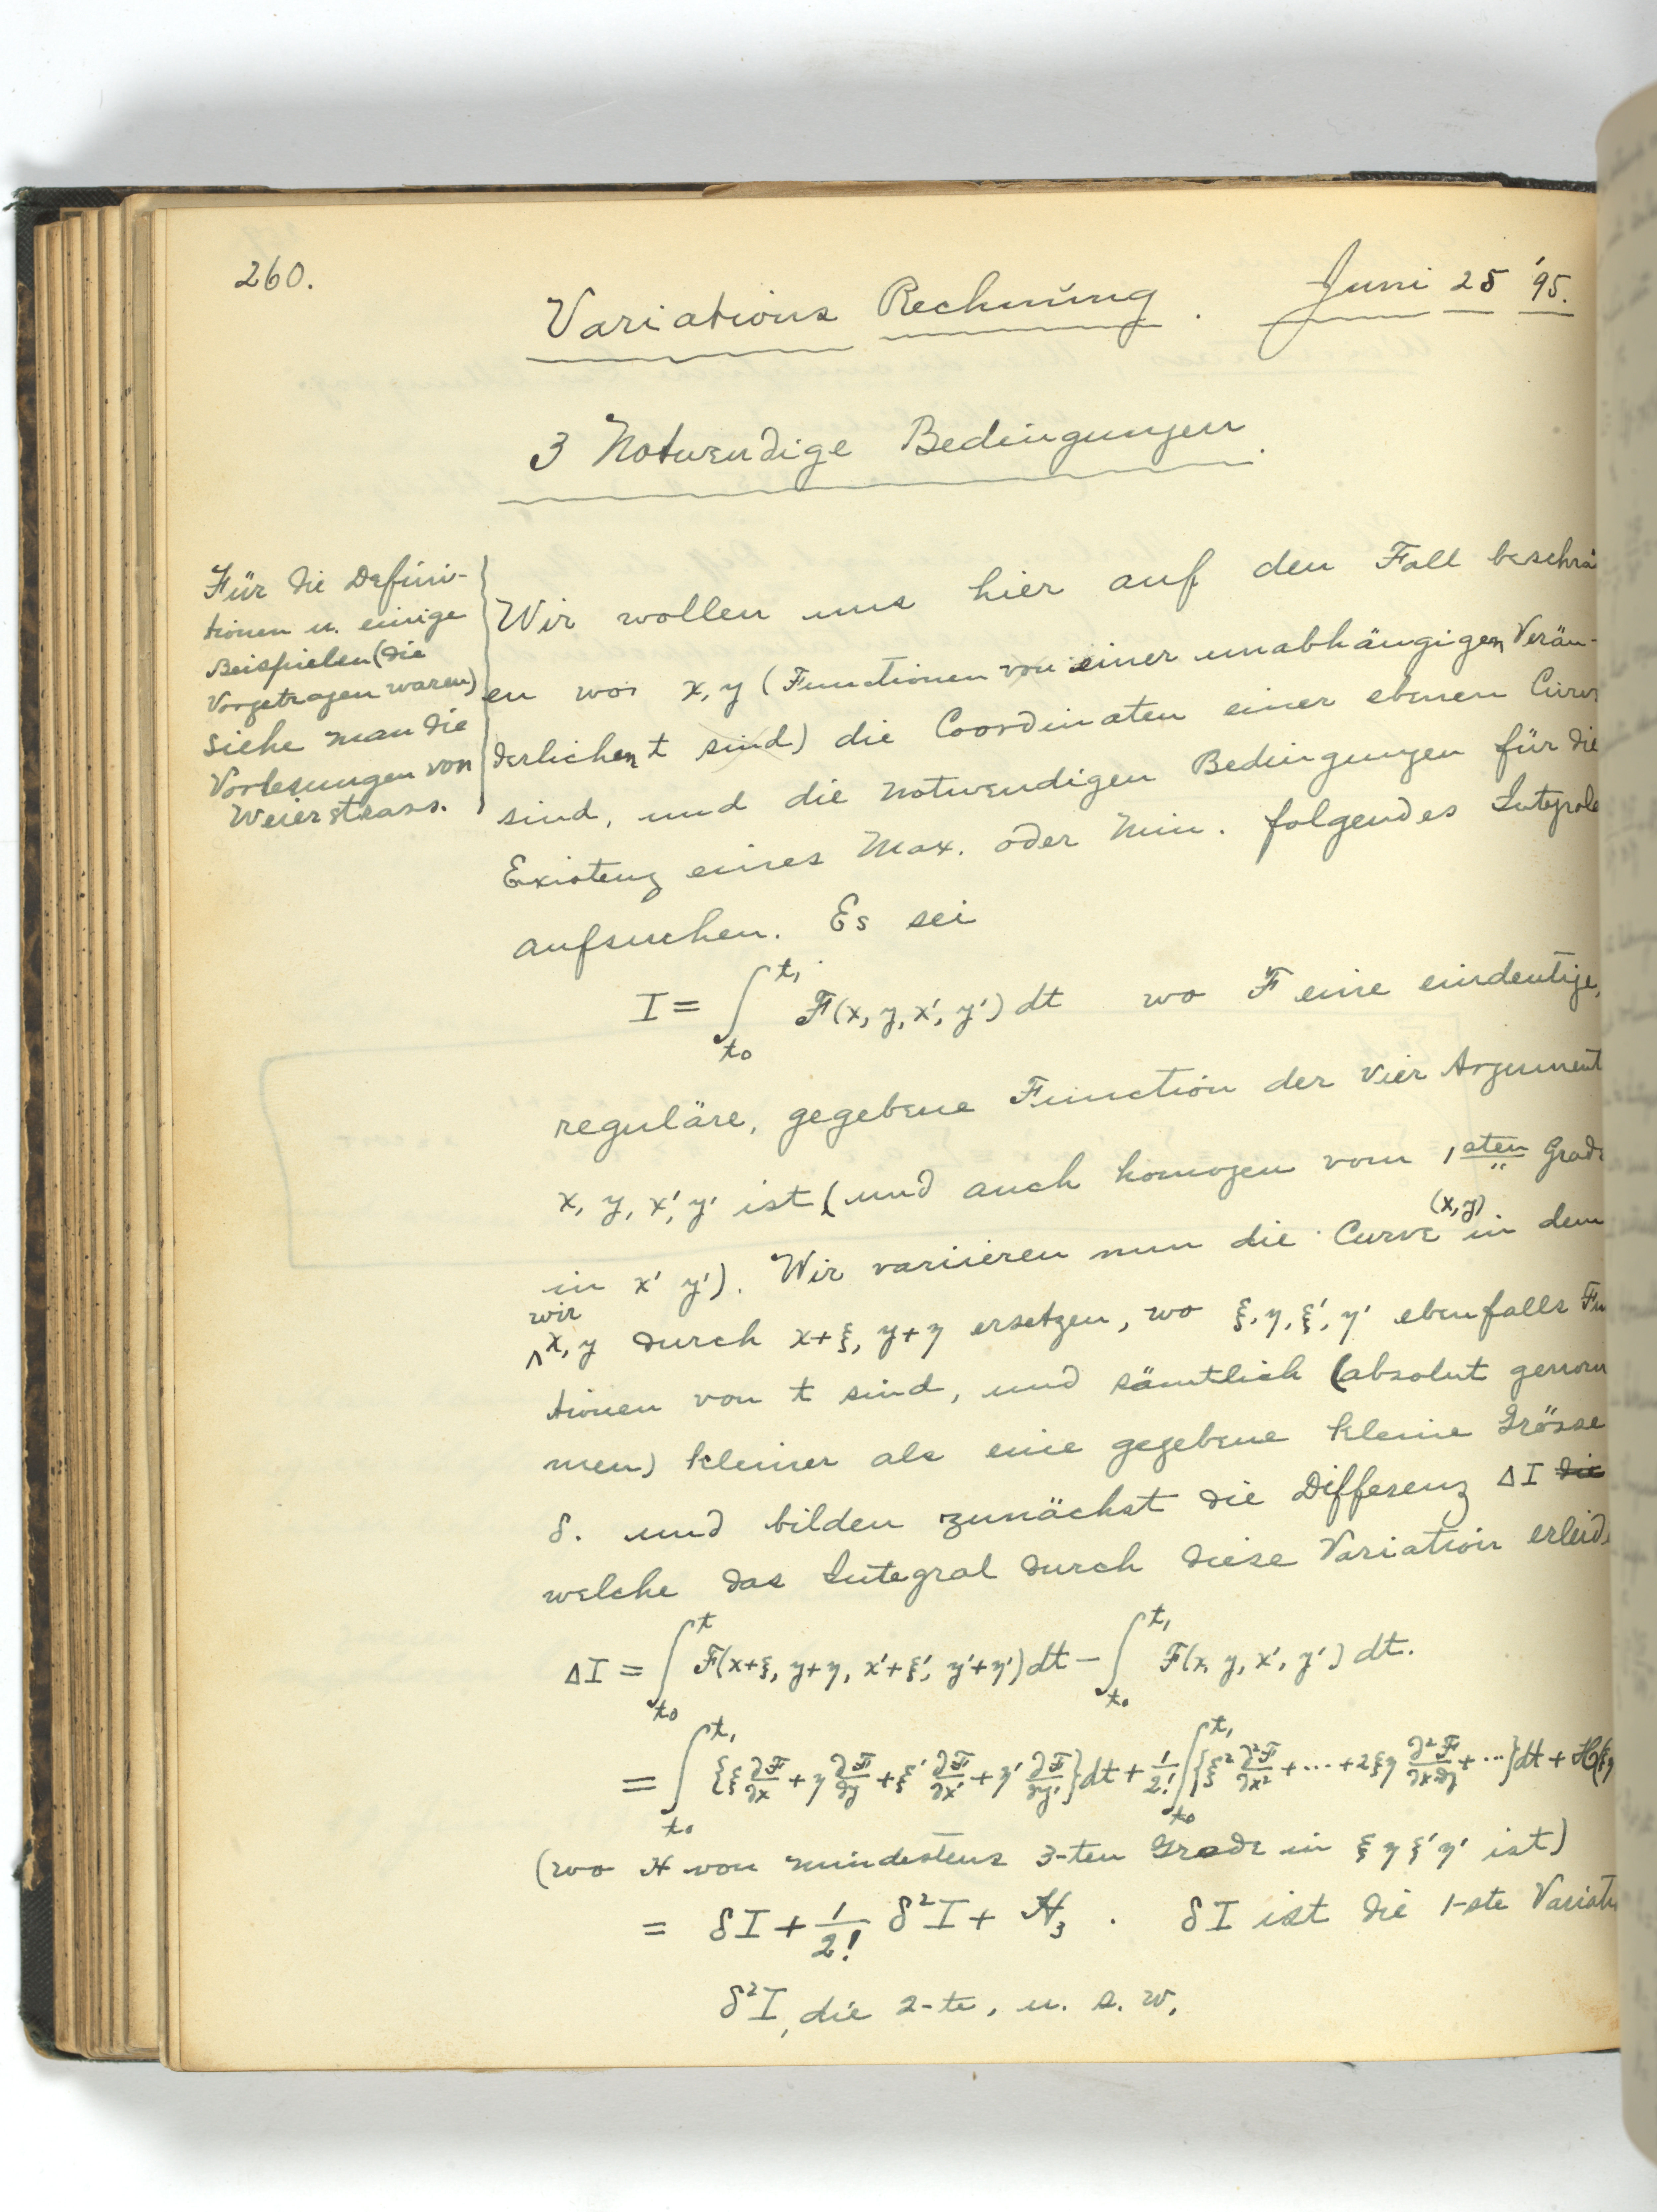 260.
Variations Rechnung. Juni 25 '95.
3 Notwendige Bedingungen.
Für die Defini-
tionen u. einige
Beispielen (die
Vorgetragen waren)
siehe man die
Vorlesungen von
Weierstrass.
Wir wollen uns hier auf den Fall beschrä
en wo x, y (Functionen von einer unabhängigen Verän-
derlichen t sind) die Coordinaten einer ebenen Curv
sind, und die notwendigen Bedingungen für die
Existenz eines Max. oder Min. folgendes Integrale
aufsuchen. Es sei
I = ∫_{t₀}^{t₁} F(x, y, x', y') dt wo F eine eindeutige,
reguläre, gegebene Function der vier Argument
x, y, x', y' ist (und auch homogen vom 1sten Grade
in x' y'). Wir variieren nun die Curve (x, y) in dem
wir x, y durch x+ξ, y+η ersetzen, wo ξ, η, ξ', η' ebenfalls Fu
tionen von t sind, und sämtlich (absolut genom
men) kleiner als eine gegebene kleine Grösse
δ. und bilden zunächst die Differenz ΔI die
welche das Integral durch diese Variation erleid
ΔI = ∫_{t₀}^{t} F(x+ξ, y+η, x'+ξ', y'+η') dt − ∫_{t₀}^{t₁} F(x, y, x', y') dt.
= ∫_{t₀}^{t₁} {ξ ∂F/∂x + η ∂F/∂y + ξ' ∂F/∂x' + η' ∂F/∂y'} dt + 1/2! ∫_{t₀}^{t₁} {ξ² ∂²F/∂x² + ... + 2ξη ∂²F/∂x∂y + ...} dt + H(ξ,η
(wo H von mindestens 3-ten Grade in ξ η ξ' η' ist)
= δI + 1/2! δ²I + H₃ . δI ist die 1-ste Variati
δ²I, die 2-te, u. s. w.